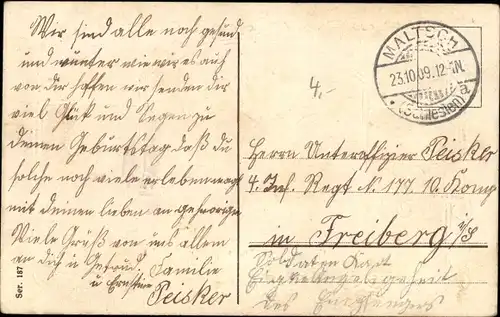 Wir sind alle noch gesund
und munter wie wir es auf
von dir hoffen wir senden dir
viel Glück und Segen zu
deinen Geburtstag daß du
solche noch viele erleben magst
mit deinen lieben an gehörigen
Viele Grüß von uns allem
an dich u Gertrud
Familie
Peisker
Ser. 187
4,-
MALTSCH
23.10.09.12-1N.
* (Schlesien) a
Herrn Unteroffizier Peisker
4. Inf. Regt N. 177. 10. Komp
in Freiberg i/S
Soldaten Kart
Eigene Angelegenheit
des Empfängers